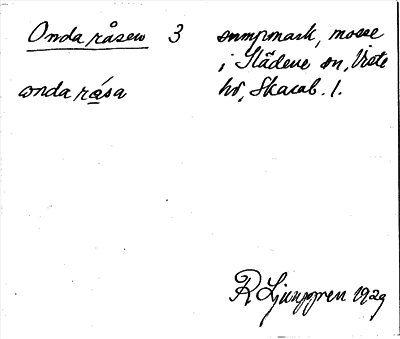 Onda råsen 3 sumpmark, mosse
i Slädene sn, Viste
onda råsa hd, Skarab. l.
R Ljunggren 1929